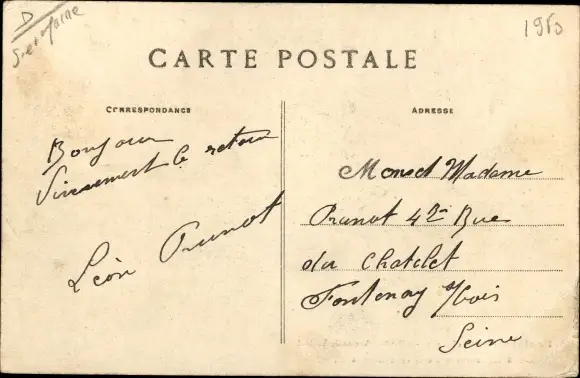 D
Seine et Marne
1950
CARTE POSTALE
CORRESPONDANCE
ADRESSE
Bonjour
Vivement le retour
Léon Prunot
Mons et Madame
Prunot 4 Bis Rue
du Chatelet
Fontenay s/Bois
Seine